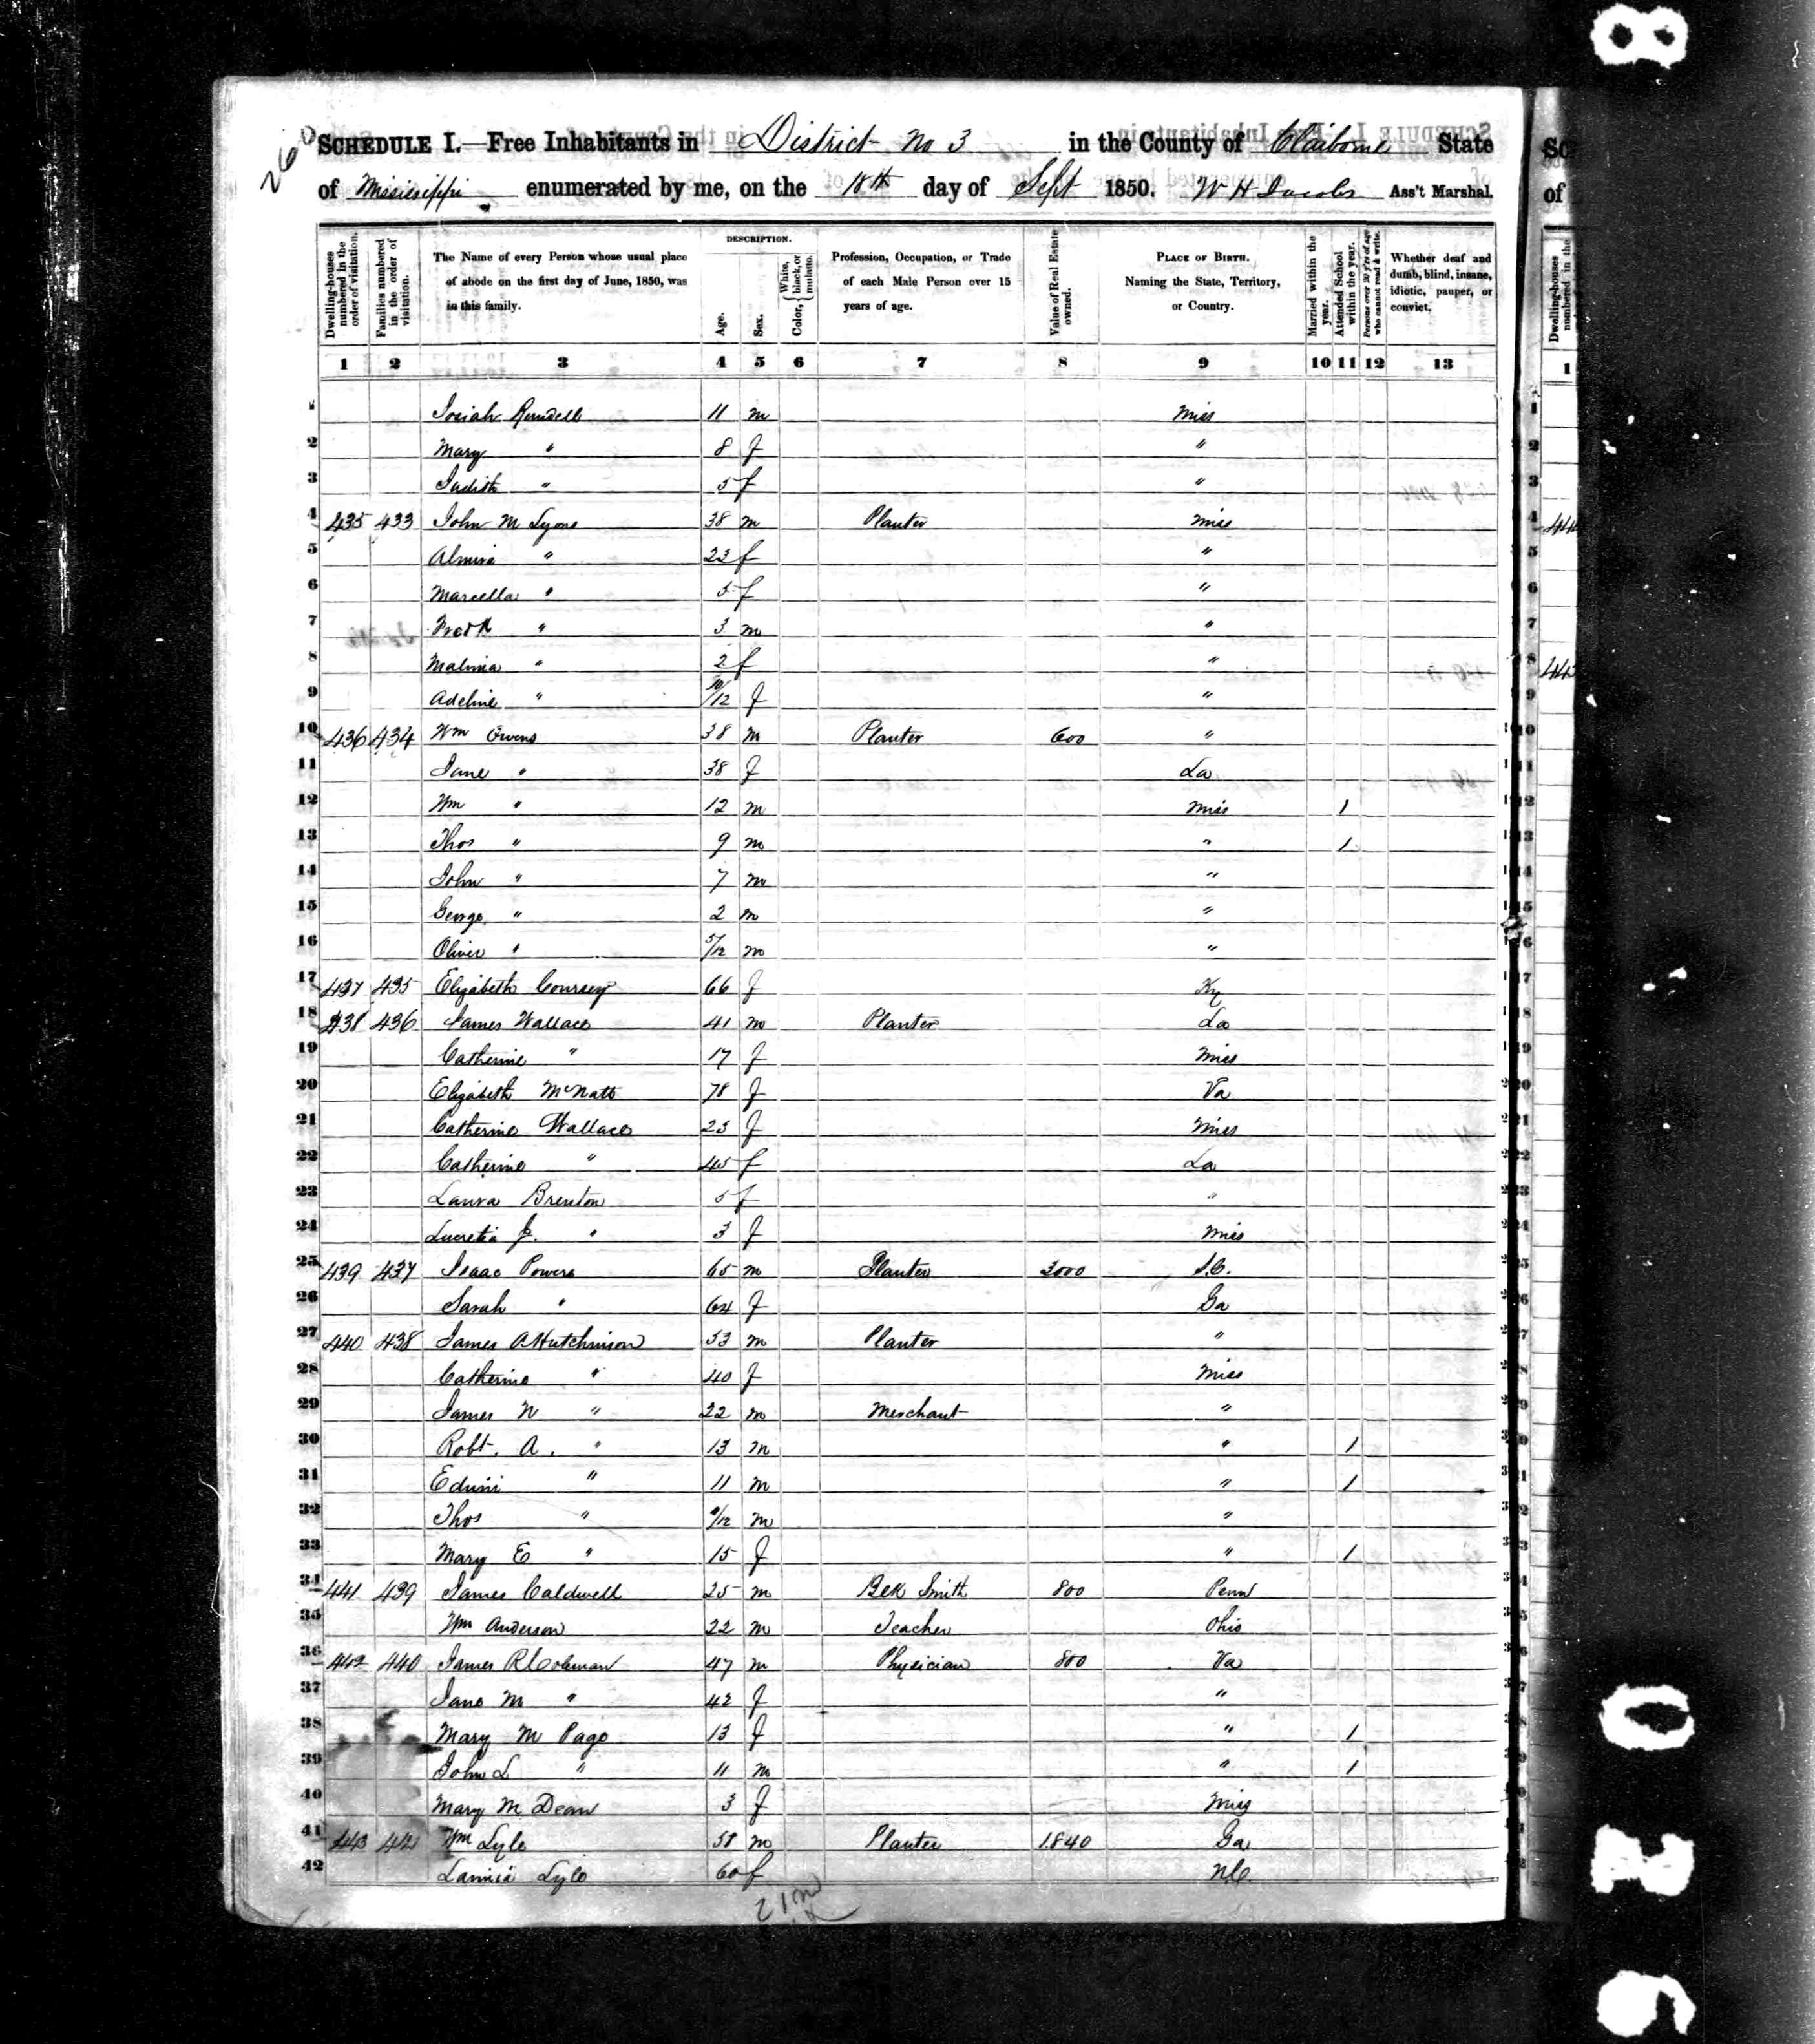 260
SCHEDULE I.—Free Inhabitants in District No 3 in the County of Claiborne State
of Mississippi enumerated by me, on the 18th day of Sept 1850. W H Jacobs Ass't Marshal.
Dwelling-houses numbered in the order of visitation.
Families numbered in the order of visitation.
The Name of every Person whose usual place of abode on the first day of June, 1850, was in this family.
DESCRIPTION.
Age.
Sex.
Color, { White, black, or mulatto.
Profession, Occupation, or Trade of each Male Person over 15 years of age.
Value of Real Estate owned.
PLACE OF BIRTH. Naming the State, Territory, or Country.
Married within the year.
Attended School within the year.
Persons over 20 y'rs of age who cannot read & write.
Whether deaf and dumb, blind, insane, idiotic, pauper, or convict.
1 2 3 4 5 6 7 8 9 10 11 12 13
1 Josiah Rundell 11 m Miss
2 Mary " 8 f "
3 Judith " 5 f "
4 435 433 John M Lyons 38 m Planter Miss
5 Almira " 23 f "
6 Marcella " 5 f "
7 Fredk " 3 m "
8 Malinia " 2 f "
9 Adeline " 10/12 f "
10 436 434 Wm Owens 38 m Planter 600 "
11 Jane " 38 f La
12 Wm " 12 m Miss 1
13 Thos " 9 m " 1
14 John " 7 m "
15 George " 2 m "
16 Oliver " 5/12 m "
17 437 435 Elizabeth Coursey 66 f Ky
18 438 436 James Wallace 41 m Planter La
19 Catherine " 17 f Miss
20 Elizabeth McNatt 78 f Va
21 Catherine Wallace 23 f Miss
22 Catherine " 45 f La
23 Laura Brenton 5 f "
24 Lucretia J. " 3 f Miss
25 439 437 Isaac Powers 65 m Planter 3000 S.C.
26 Sarah " 64 f Ga
27 440 438 James A Hutchinson 53 m Planter "
28 Catherine " 40 f Miss
29 James N " 22 m Merchant "
30 Robt. A. " 13 m " 1
31 Edwin " 11 m " 1
32 Thos " 9/12 m "
33 Mary E " 15 f " 1
34 441 439 James Caldwell 25 m Blk Smith 800 Penn
35 Wm Anderson 22 m Teacher Ohio
36 442 440 James R Coleman 47 m Physician 800 Va
37 Jane M " 42 f "
38 Mary M Page 13 f " 1
39 John L " 11 m " 1
40 Mary M Dean 3 f Miss
41 443 441 Wm Lyle 58 m Planter 1840 Ga
42 Lavinia Lyle 60 f N.C.
21 m